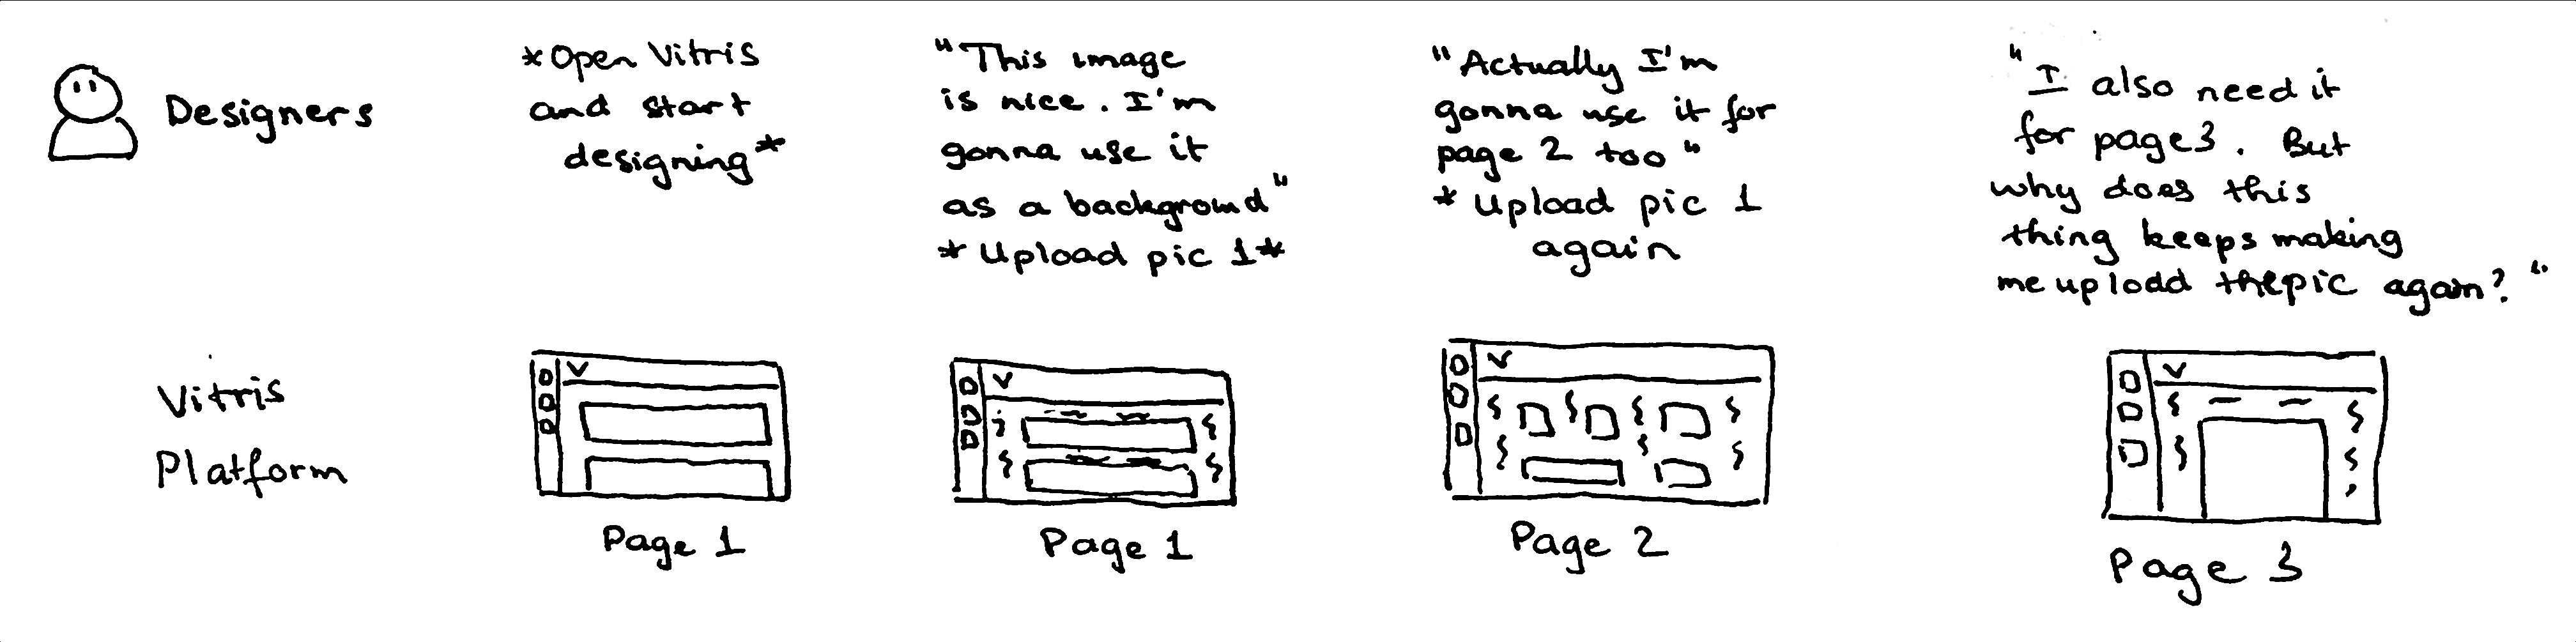 Designers
*Open Vitris
and start
designing*
"This image
is nice. I'm
gonna use it
as a background"
*Upload pic 1*
"Actually I'm
gonna use it for
page 2 too"
* Upload pic 1
again
"I also need it
for page 3. But
why does this
thing keeps making
me upload the pic again?"
Vitris
Platform
V
Page 1
V
Page 1
V
Page 2
V
Page 3